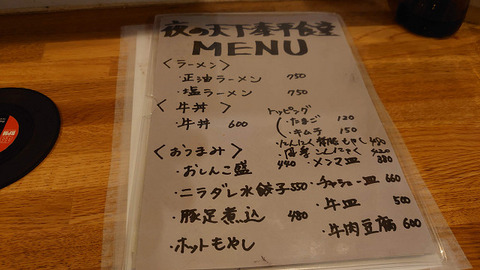 夜の天下泰平食堂
MENU
〈ラーメン〉
・正油ラーメン 750
・塩ラーメン 750
〈牛丼〉
・牛丼 600
トッピング
・たまご 120
・キムラ 150
〈おつまみ〉
・おしんこ盛 440
・ニラダレ水餃子 550
・豚足煮込 480
・ホットもやし
・にんにく背脂もやし 480
こんにゃく 420
・メンマ皿 380
・チャシュー皿 660
・牛皿 500
・牛肉豆腐 600